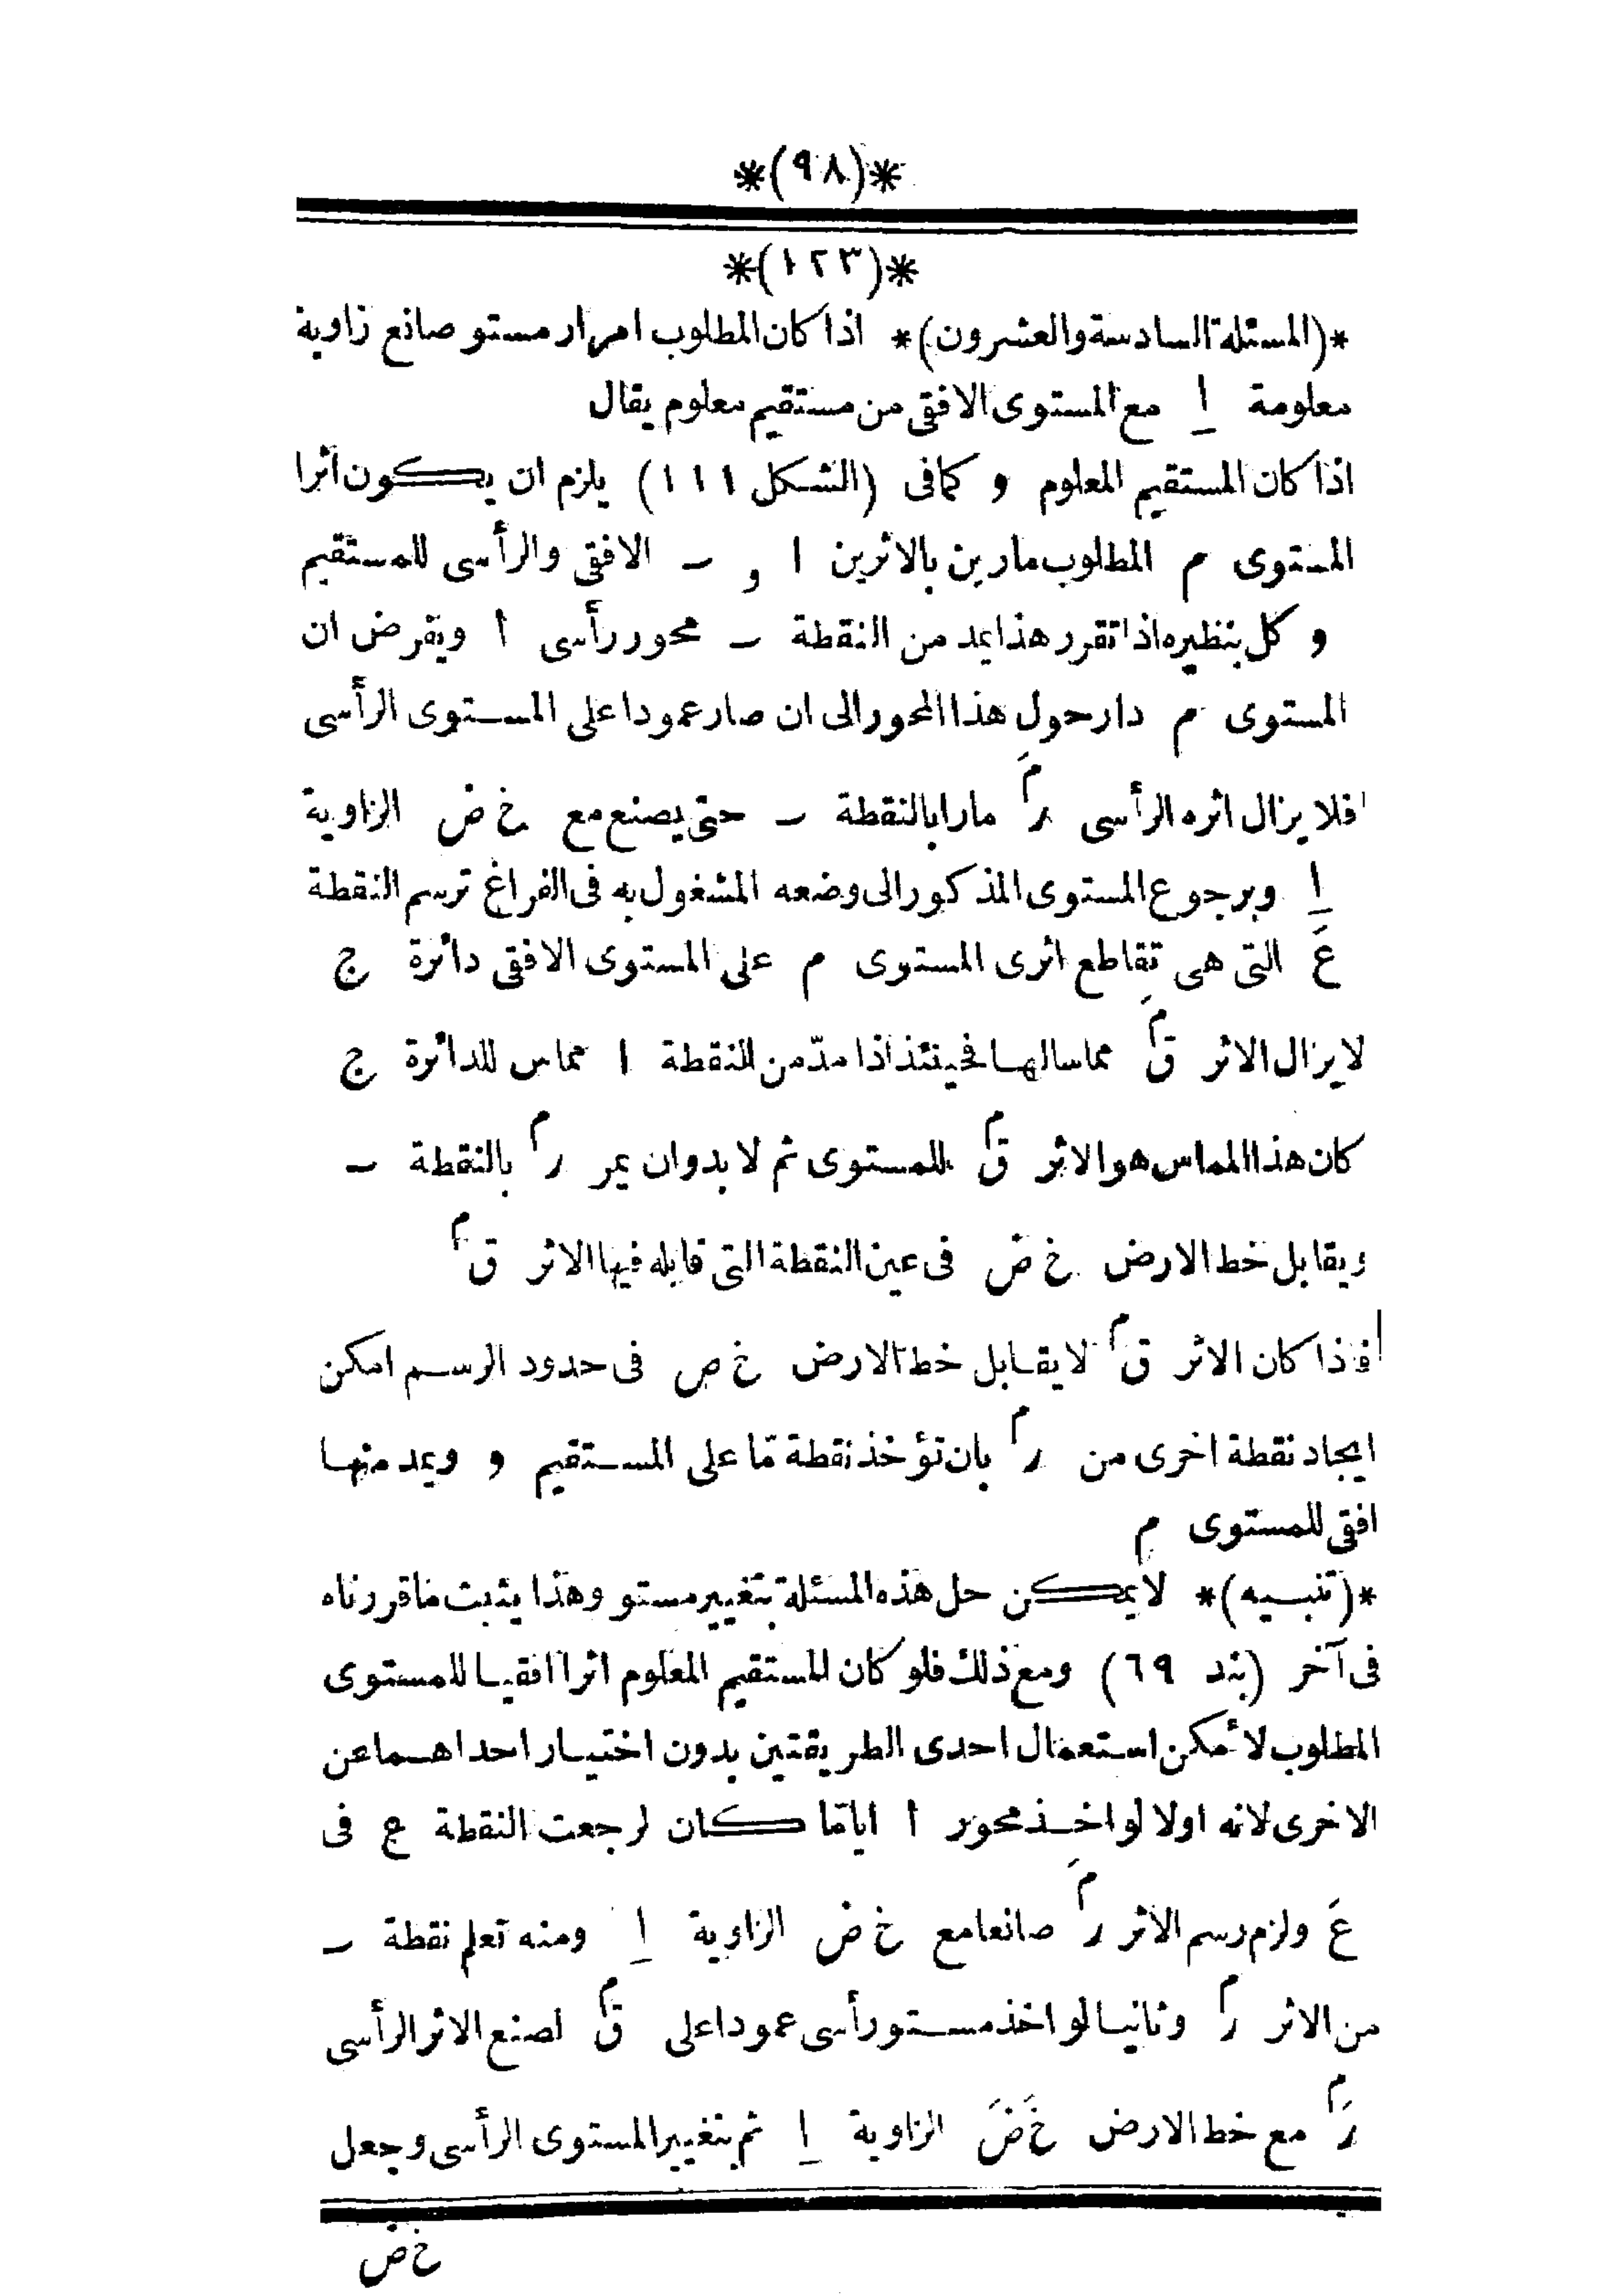 *(٩٨)*
*(١٢٣)*
*(المسئلة السادسة والعشرون)* اذا كان المطلوب امرار مستو صانع زاوية
معلومة ا مع المستوى الافقى من مستقيم معلوم يقال
اذا كان المستقيم المعلوم و كما فى (الشكل ١١١) يلزم ان يكون أثرا
المستوى م المطلوب مارين بالاثرين ا و ـ الافقى والرأسى للمستقيم
و كل بنظيره اذا تقرر هذا يمد من النقطة ـ محور رأسى ا ويفرض ان
المستوى م دار حول هذا المحور الى ان صار عمودا على المستوى الرأسى
فلا يزال اثره الرأسى رَم مارا بالنقطة ـ حتى يصنع مع خ ض الزاوية
ا وبرجوع المستوى المذكور الى وضعه المشغول به فى الفراغ ترسم النقطة
عَ التى هى تقاطع اثرى المستوى م على المستوى الافقى دائرة ج
لا يزال الاثر قَم مماسا لها فحينئذ اذا مدّ من النقطة ا مماس للدائرة ج
كان هذا المماس هو الاثر قم للمستوى ثم لا بد وان يمر رم بالنقطة ـ
ويقابل خط الارض خ ض فى عين النقطة التى قابله فيها الاثر قم
فاذا كان الاثر قم لا يقابل خط الارض خ ض فى حدود الرسم امكن
ايجاد نقطة اخرى من رم بان تؤخذ نقطة مّا على المستقيم و ويمد منها
افقى للمستوى م
*(تنبيه)* لا يمكن حل هذه المسئلة بتغيير مستو وهذا يثبت ما قررناه
فى آخر (بند ٦٩) ومع ذلك فلو كان المستقيم المعلوم اثرا افقيا للمستوى
المطلوب لأمكن استعمال احدى الطريقتين بدون اختيار احداهما عن
الاخرى لانه اولا لو اخذ محور ا ايامّا كان لرجعت النقطة ع فى
عَ ولزم رسم الاثر رَم صانعا مع خ ض الزاوية ا ومنه تعلم نقطة ـ
من الاثر رم وثانيا لو اخذ مستو رأسى عمودا على قم لصنع الاثر الرأسى
رَم مع خط الارض خَ ضَ الزاوية ا ثم بتغيير المستوى الرأسى وجعل
خ ض